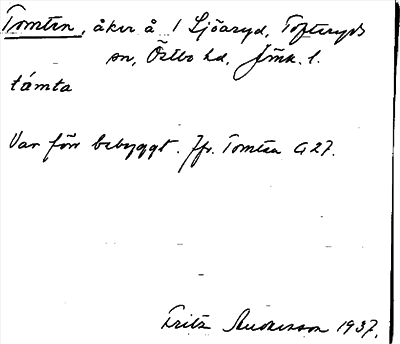 Tomten, åker å 1 Ljöaryd, Tofteryds
sn, Östbo hd, Jönk. l.
támta
Var förr bebyggt. Jfr. Tomten G 27.
Fritz Andersson 1937.